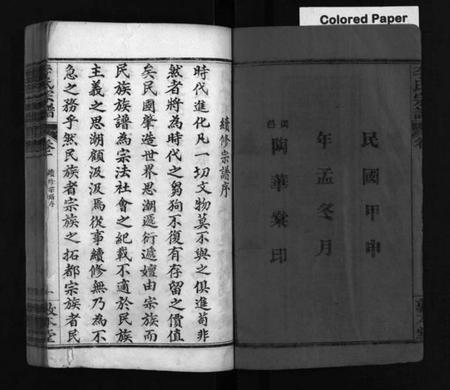 Colored Paper
民國甲申
年孟冬月
陶華棄印
續修宗譜序
時代進化凡一切文物莫不與之俱進苟非
然者將為時代之芻狗不復有存留之價值
矣民國肇造世界思潮遞衍遞嬗由宗族而
民族族譜為宗法社會之紀載不適於民族
主義之思潮顧汲汲焉從事續修無乃為不
急之務乎然民族者宗族之拓都宗族者民
李氏宗譜
卷首
續修宗譜序
一
敦本堂